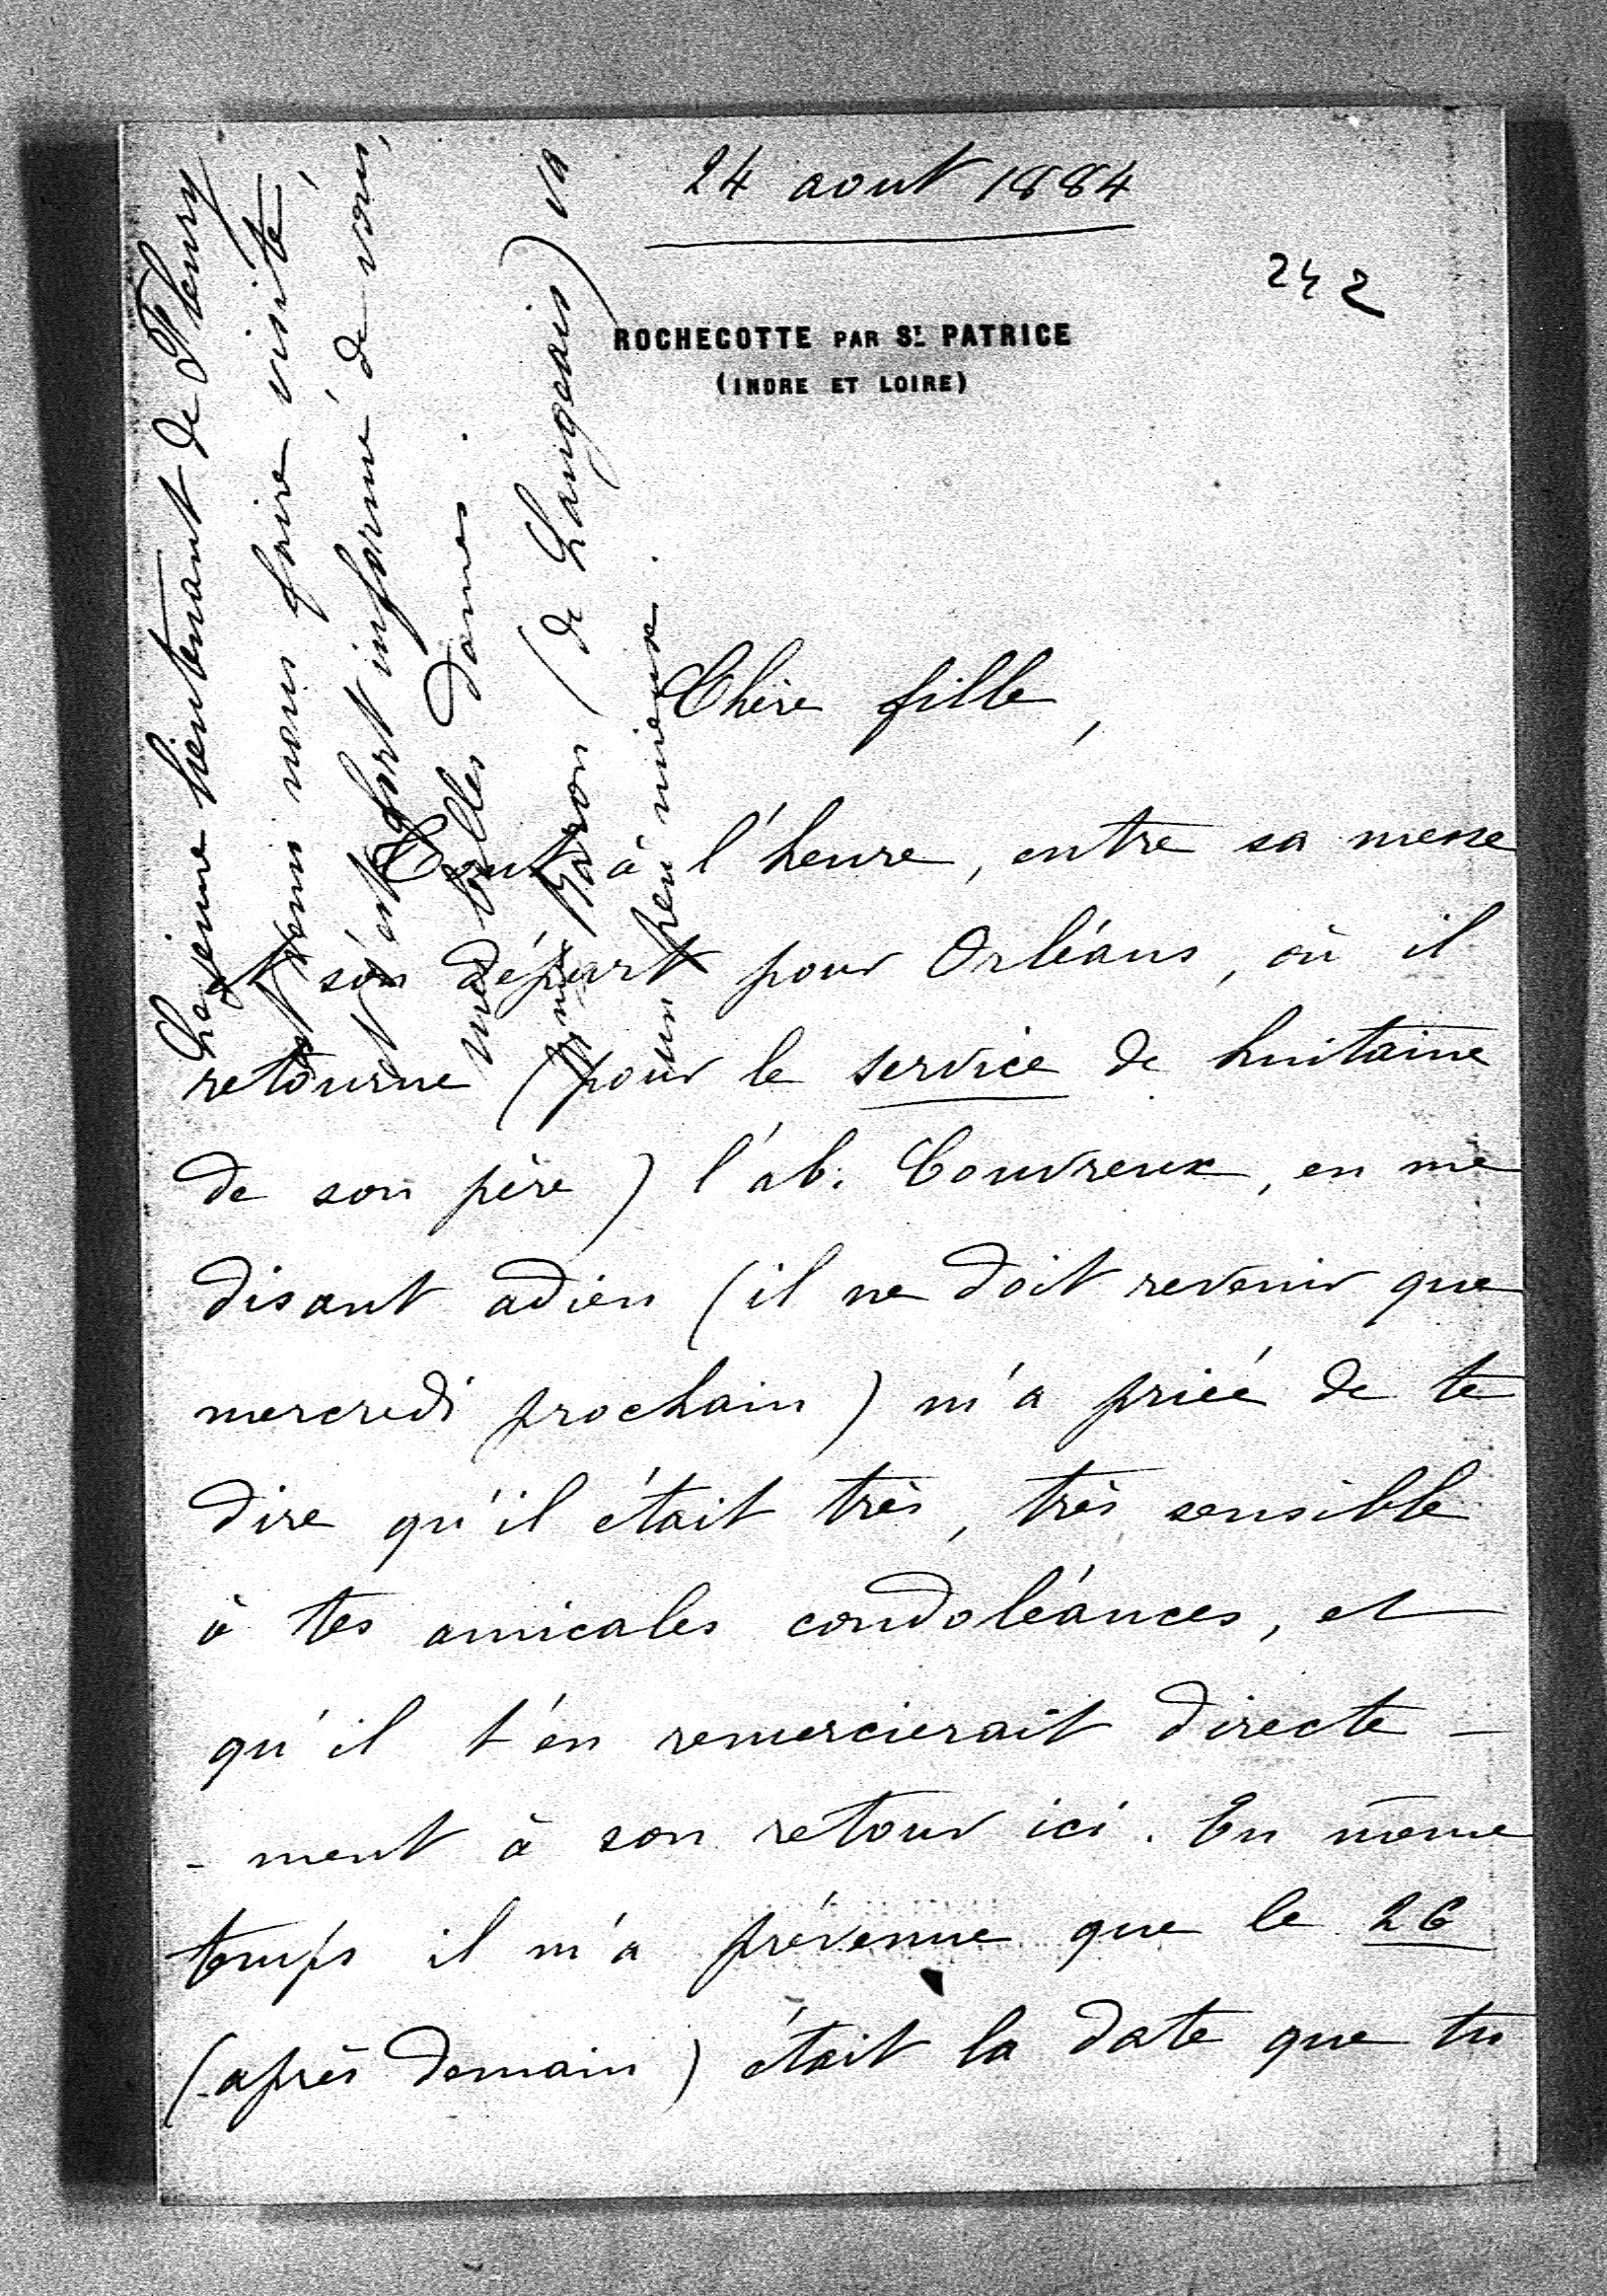 24 aout 1884
242
ROCHECOTTE PAR St PATRICE
(INDRE ET LOIRE)
Chère fille,
Tout à l'heure, entre sa messe
et son départ pour Orléans, où il
retourne (pour le service de huitaine
de son père) l'ab. Couvreux, en me
disant adieu (il ne doit revenir que
mercredi prochain) m'a priée de te
dire qu'il était très, très sensible
à tes amicales condoléances, et
qu'il t'en remercierait directe-
-ment à son retour ici. En même
temps il m'a prévenue que le 26
(après demain) était la date que tu
Le jeune lieutenant de Fleury
est venu nous faire visite,
et s'est fort informé de vous,
mes belles dames.
Mme Baron (de Langeais) va
un peu mieux.